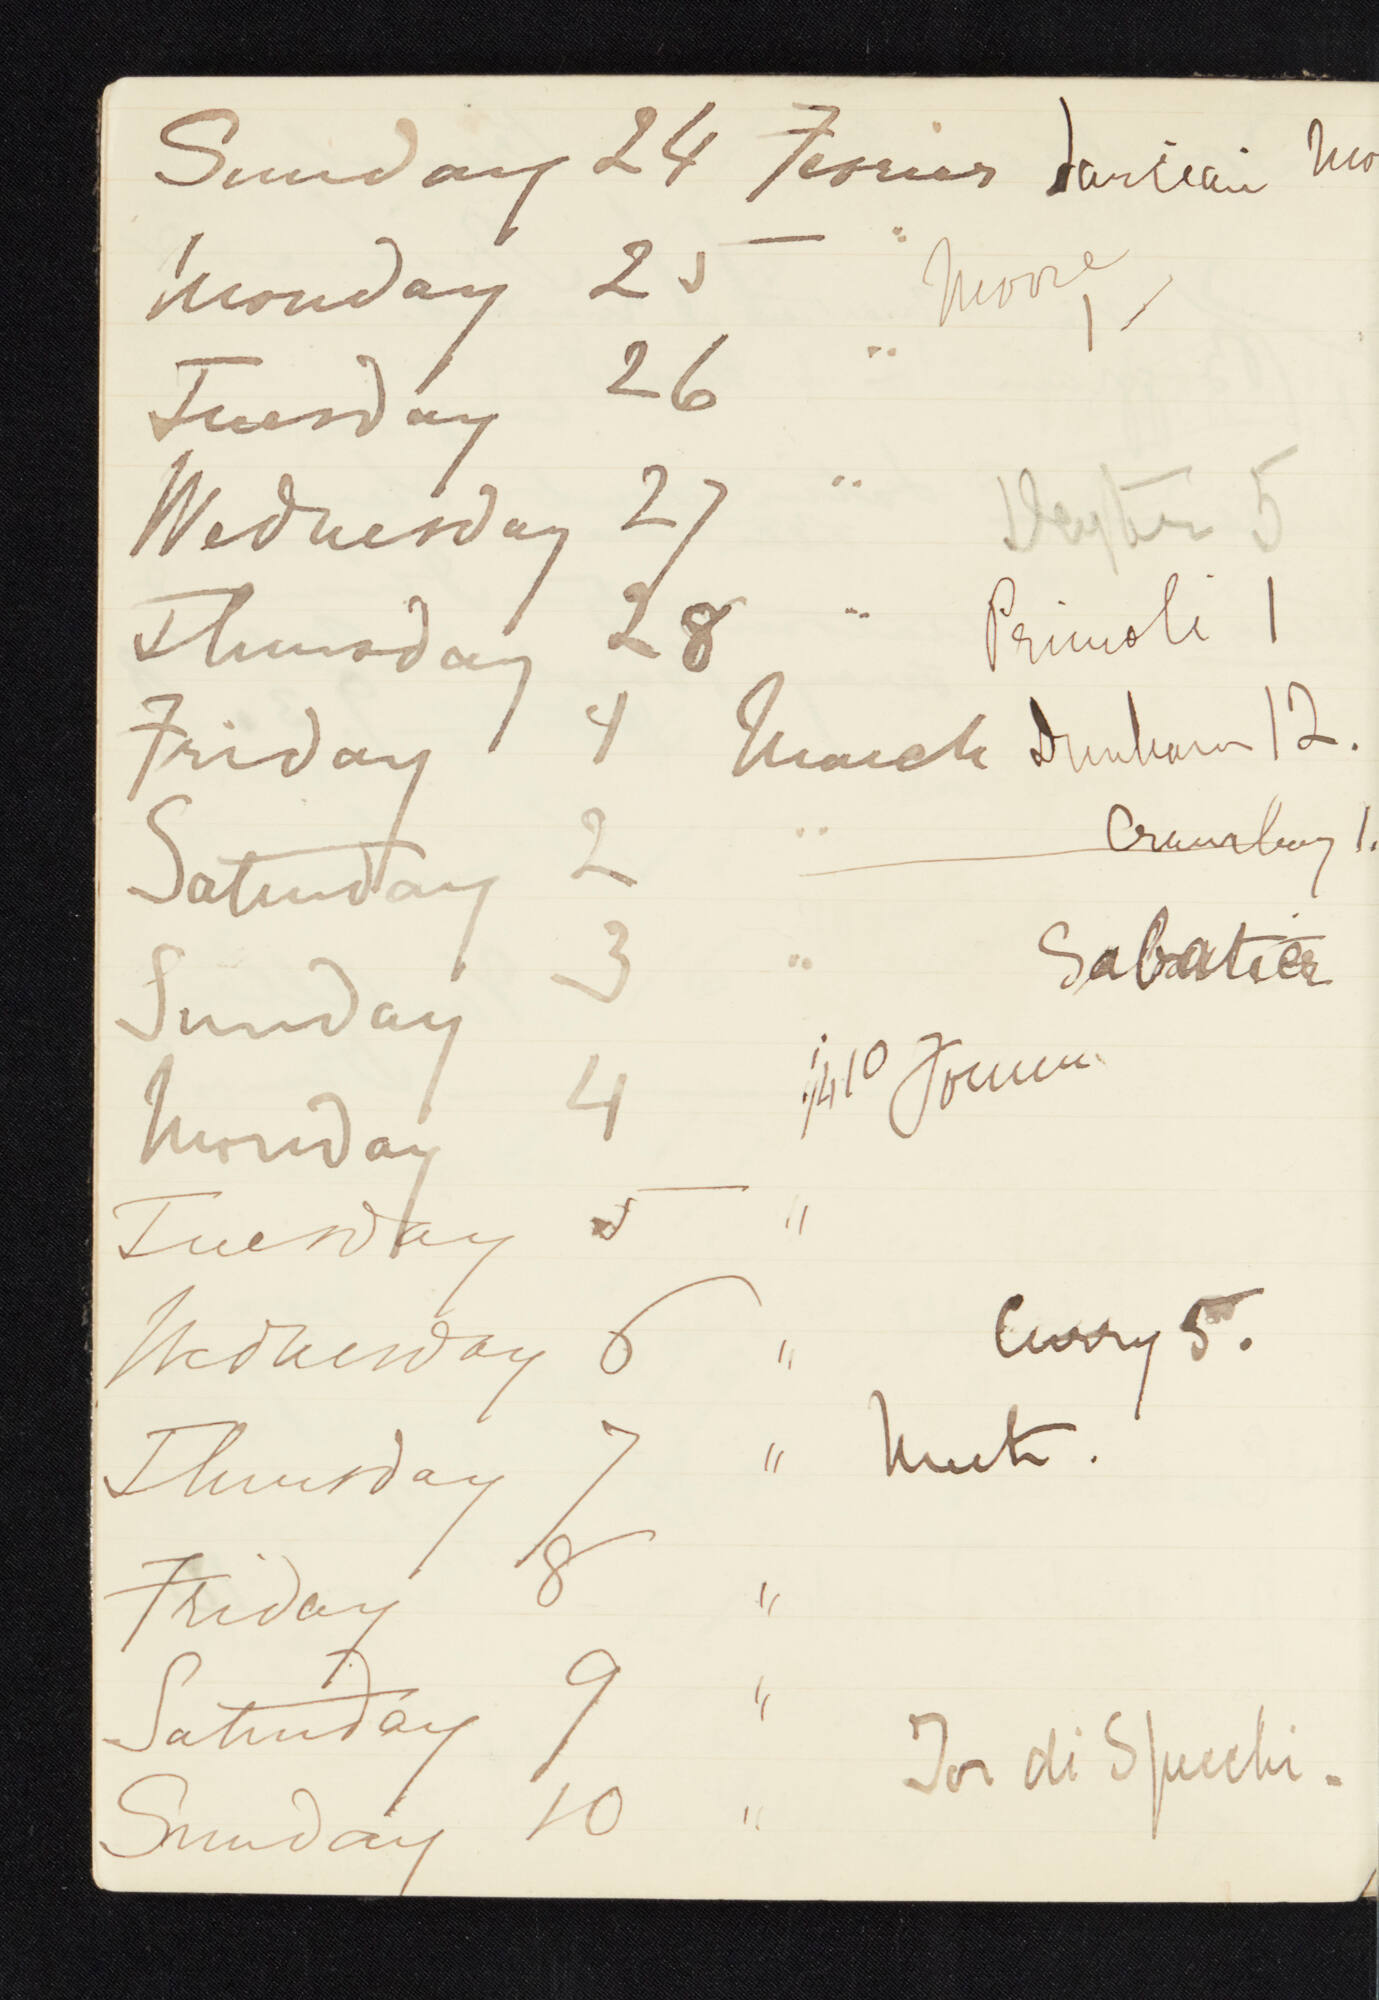 Sunday 24 Fevrier
Monday 25 " Moore
Tuesday 26 "
Wednesday 27 " 5
Thursday 28 " Primoli 1
Friday 1 March Dunham 12.
Saturday 2 " 1.
Sunday 3 " Sabatier
Monday 4 10 Forum
Tuesday 5 "
Wednesday 6 " Curry 5.
Thursday 7 "
Friday 8 "
Saturday 9 "
Tor di Specchi.
Sunday 10 "